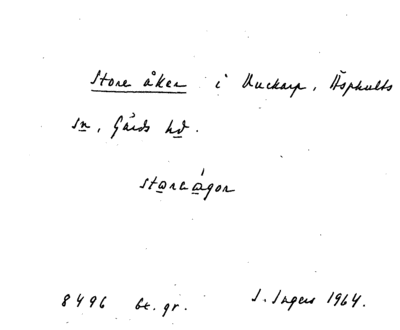 Store åker i Huckarp, Äsphults
sn, Gärds hd.
storeågor
8496 bt. gr. I. Ingers 1964.